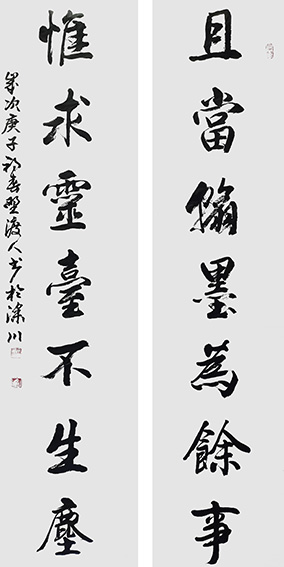 且當翰墨為餘事
惟求靈臺不生塵
歲次庚子初春野渡人書於深川